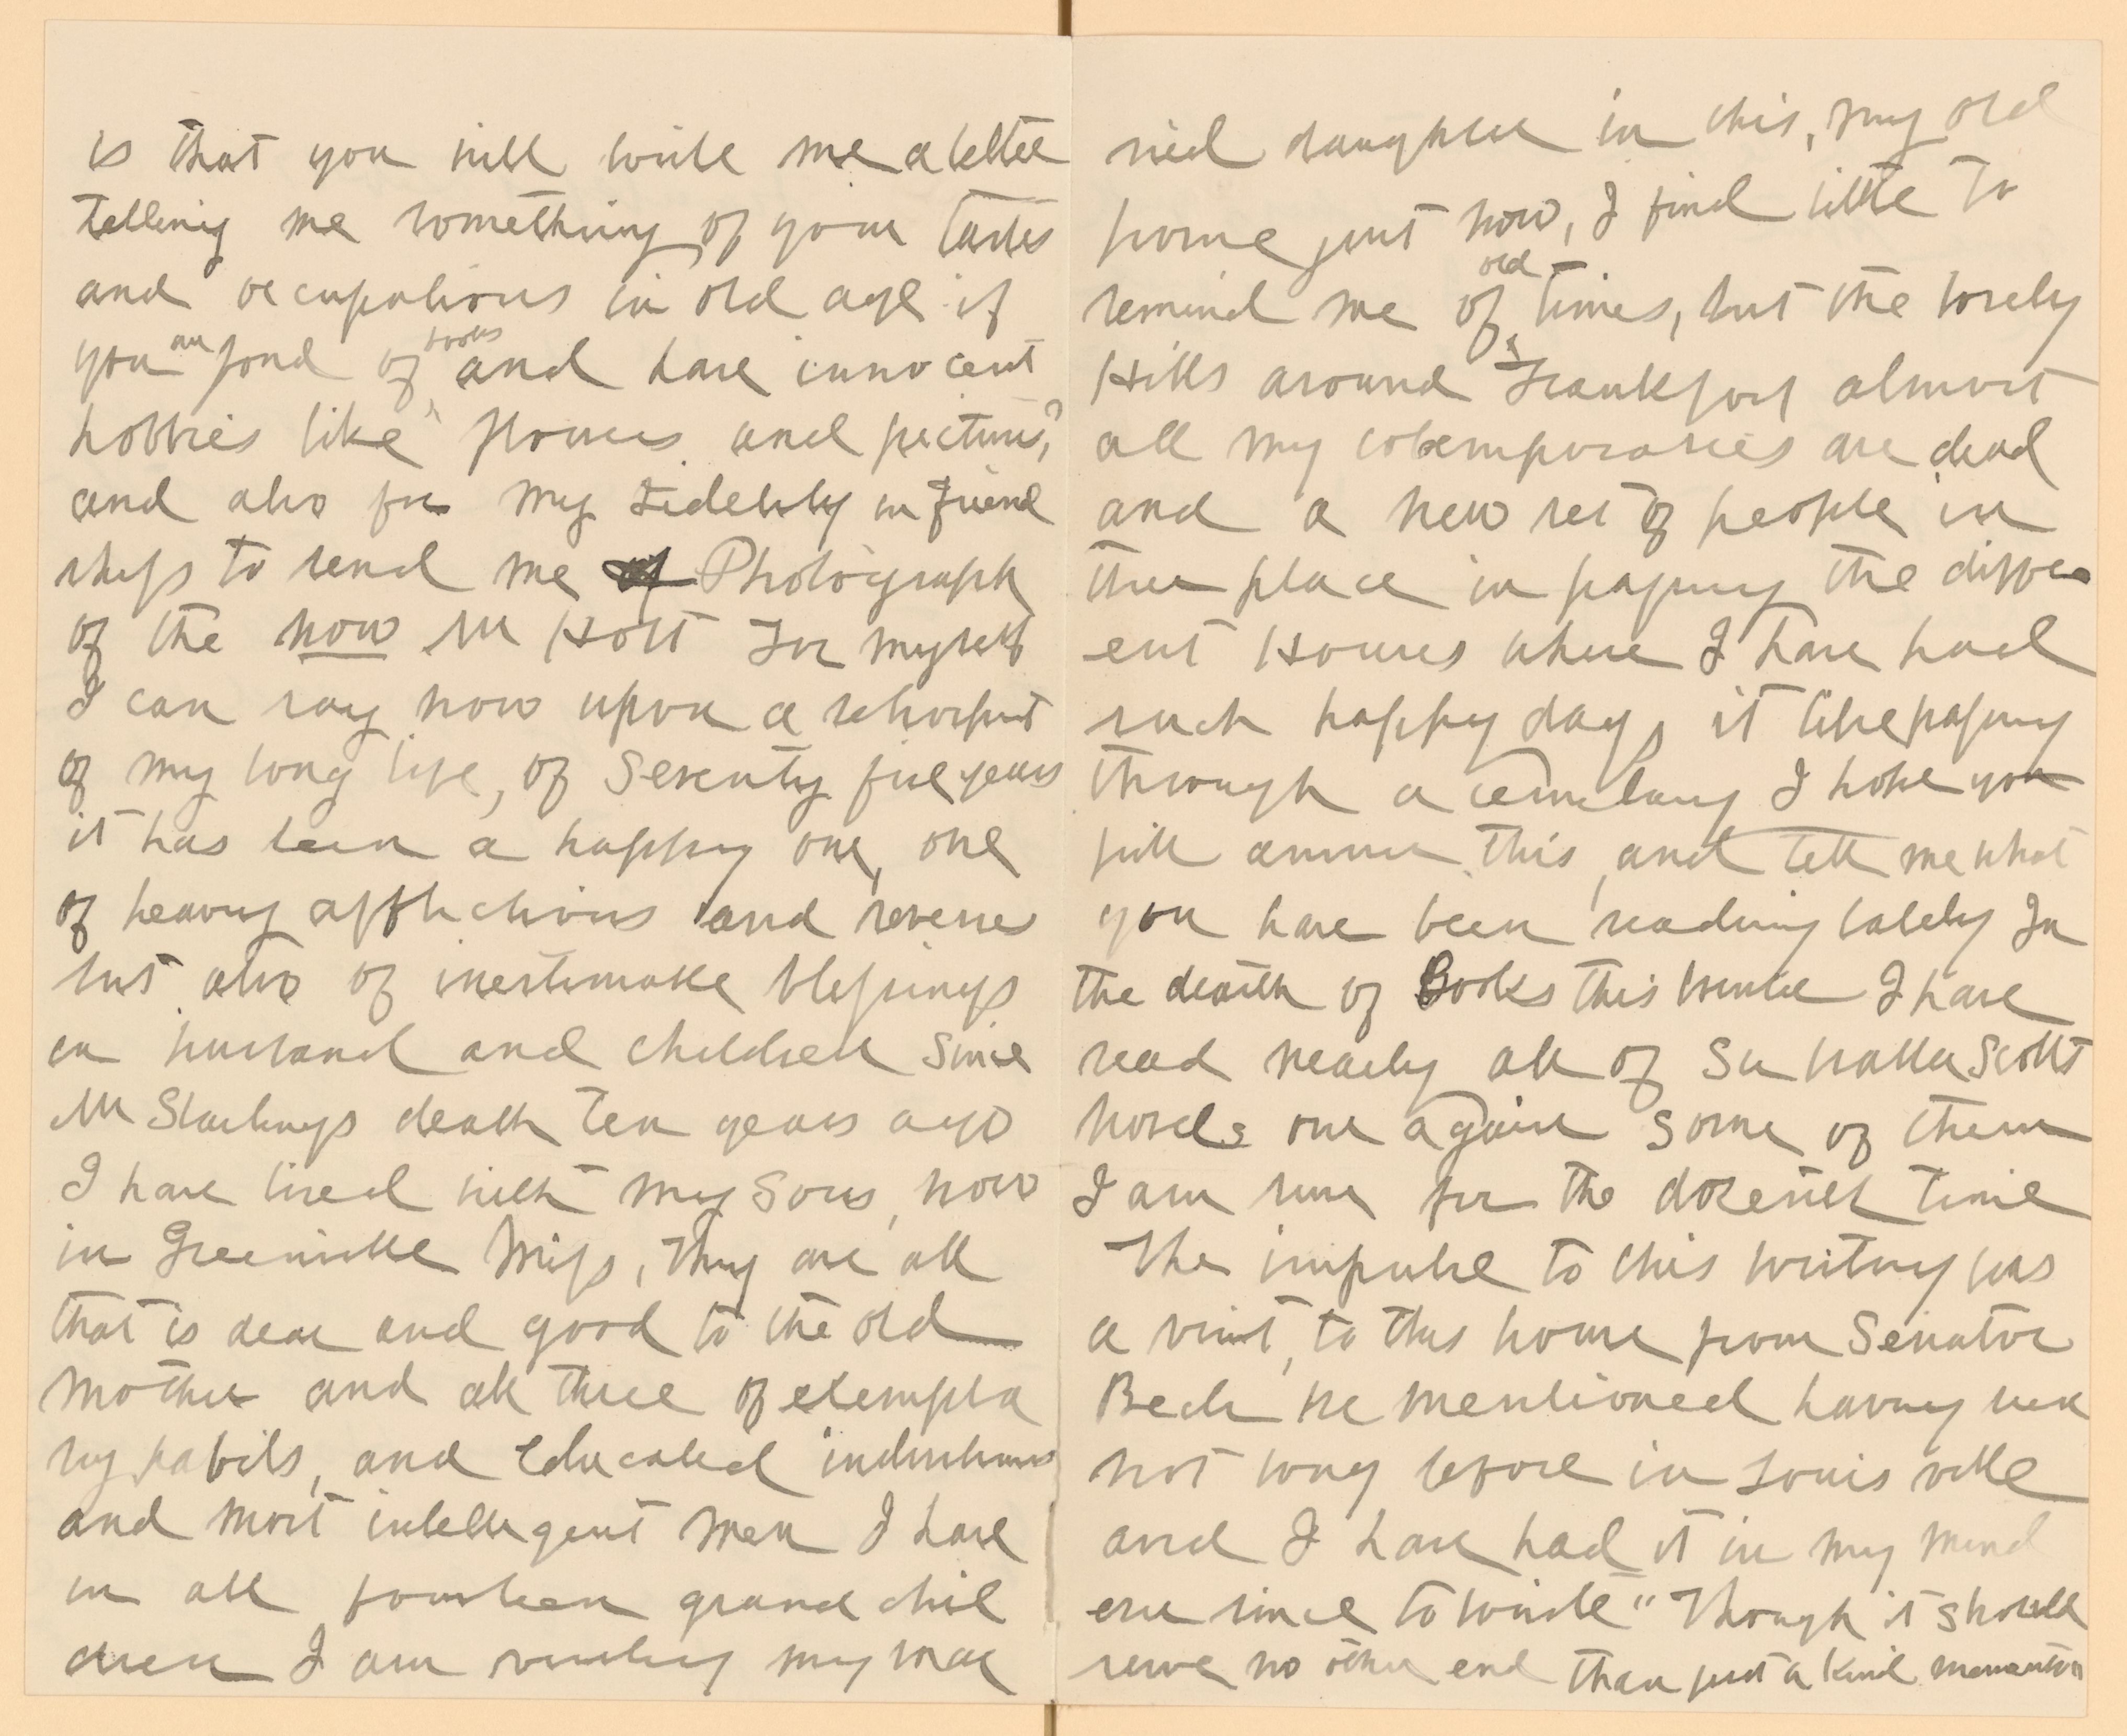 is that you will write me a letter
telling me something of your tastes
and occupations in old age if
you are fond of books and have innocent
hobbies like "flowers and pictures,?
and also for my Fidelity in friend
ships to send me Photograph
of the now Mr Holt For myself
I can say now upon a retrospect
of my long life, of Seventy five years
it has been a happy one, one
of heavy afflictions and reverses
but also of inestimable blessings
in husband and children Since
Mr Starlings death ten years ago
I have lived with my Sons, now
in Greenville Miss, They are all
that is dear and good to the old
mother and all three of exempla
ry habits, and educated industrious
and most intelligent men I have
in all fourteen grand chil
dren I am visiting my mar
ried daughter in this, my old
home just now, I find little to
remind me of old times, but the lovely
Hills around Frankfort almost
all my cotemporaries are dead
and a new set of people in
their place in passing the differ
ent Houses where I have had
such happy days it like passing
through a cemetary I hope you
will answer this, and tell me what
you have been reading lately In
the dearth of Books this winter I have
read nearly all of Sir Walter Scotts
novels over again some of them
I am sure for the dozenth time
The impulse to this writing was
a visit, to this home from Senator
Beck he mentioned having seen
not long before in Louis ville
and I have had it in my mind
ever since to write "Though it should
serve no other end than just a kind memento